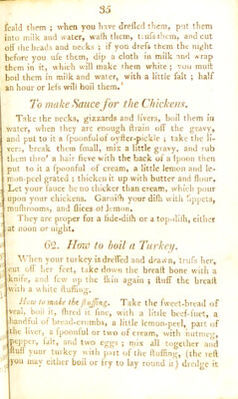 35
ſcald them ; when you have dreſſed them, put them
into milk and water, waſh them, truſs them, and cut
off the heads and necks ; if you dreſs them the night
before you uſe them, dip a cloth in milk and wrap
them in it, which will make them white ; you muſt
boil them in milk and water, with a little ſalt ; half
an hour or leſs will boil them.
To make Sauce for the Chickens.
Take the necks, gizzards and livers, boil them in
water, when they are enough ſtrain off the gravy,
and put to it a ſpoonful of oyſter-pickle ; take the li-
vers, break them ſmall, mix a little gravy, and rub
them thro' a hair ſieve with the back of a ſpoon then
put to it a ſpoonful of cream, a little lemon and le-
mon-peel grated ; thicken it up with butter and flour.
Let your ſauce be no thicker than cream, which pour
upon your chickens. Garniſh your diſh with ſippets,
muſhrooms, and ſlices of lemon.
They are proper for a ſide-diſh or a top-diſh, either
at noon or night.
62. How to boil a Turkey.
When your turkey is dreſſed and drawn, truſs her,
cut off her feet, take down the breaſt bone with a
knife, and ſew up the ſkin again ; ſtuff the breaſt
with a white ſtuffing.
How to make the ſtuffing. Take the ſweet-bread of
veal, boil it, ſhred it fine, with a little beef-ſuet, a
handful of bread-crumbs, a little lemon-peel, part of
the liver, a ſpoonful or two of cream, with nutmeg,
pepper, ſalt, and two eggs ; mix all together and
ſtuff your turkey with part of the ſtuffing, (the reſt
you may either boil or fry to lay round it) dredge it